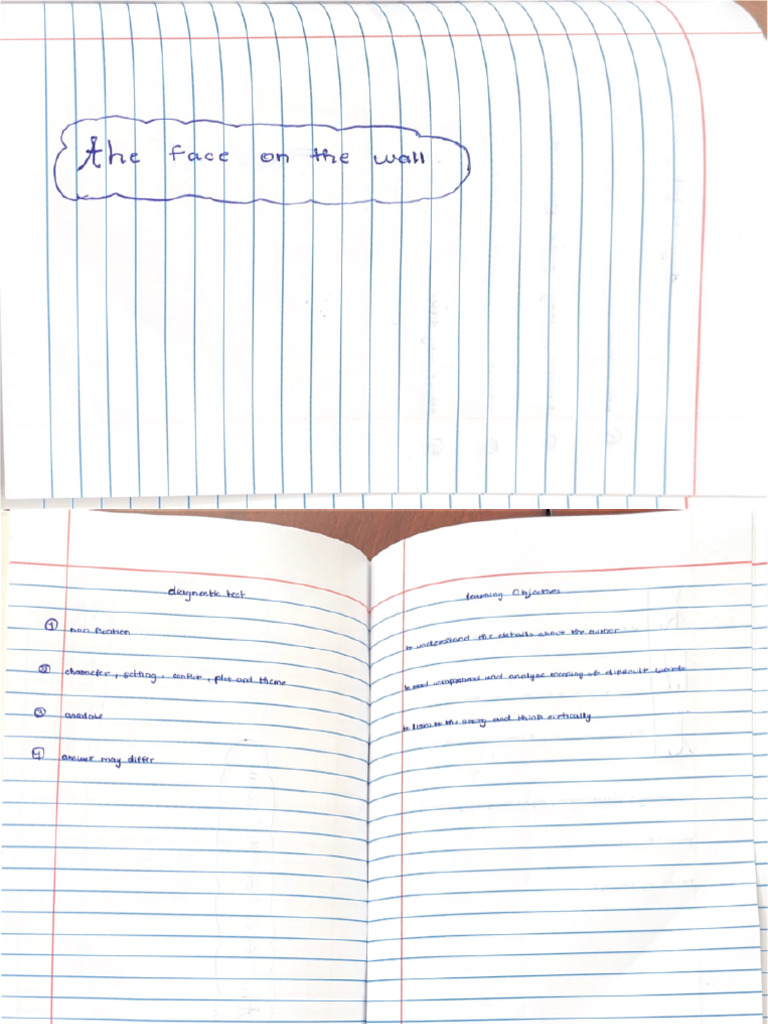 the face on the wall
diagnostic test
1 non fication
2 character, setting, conflict, plot and theme
3
4 answer may differ
learning Objectives
to understand the details about the author
to read comprehend and analyse meaning of dificult words
to listen to the story and think